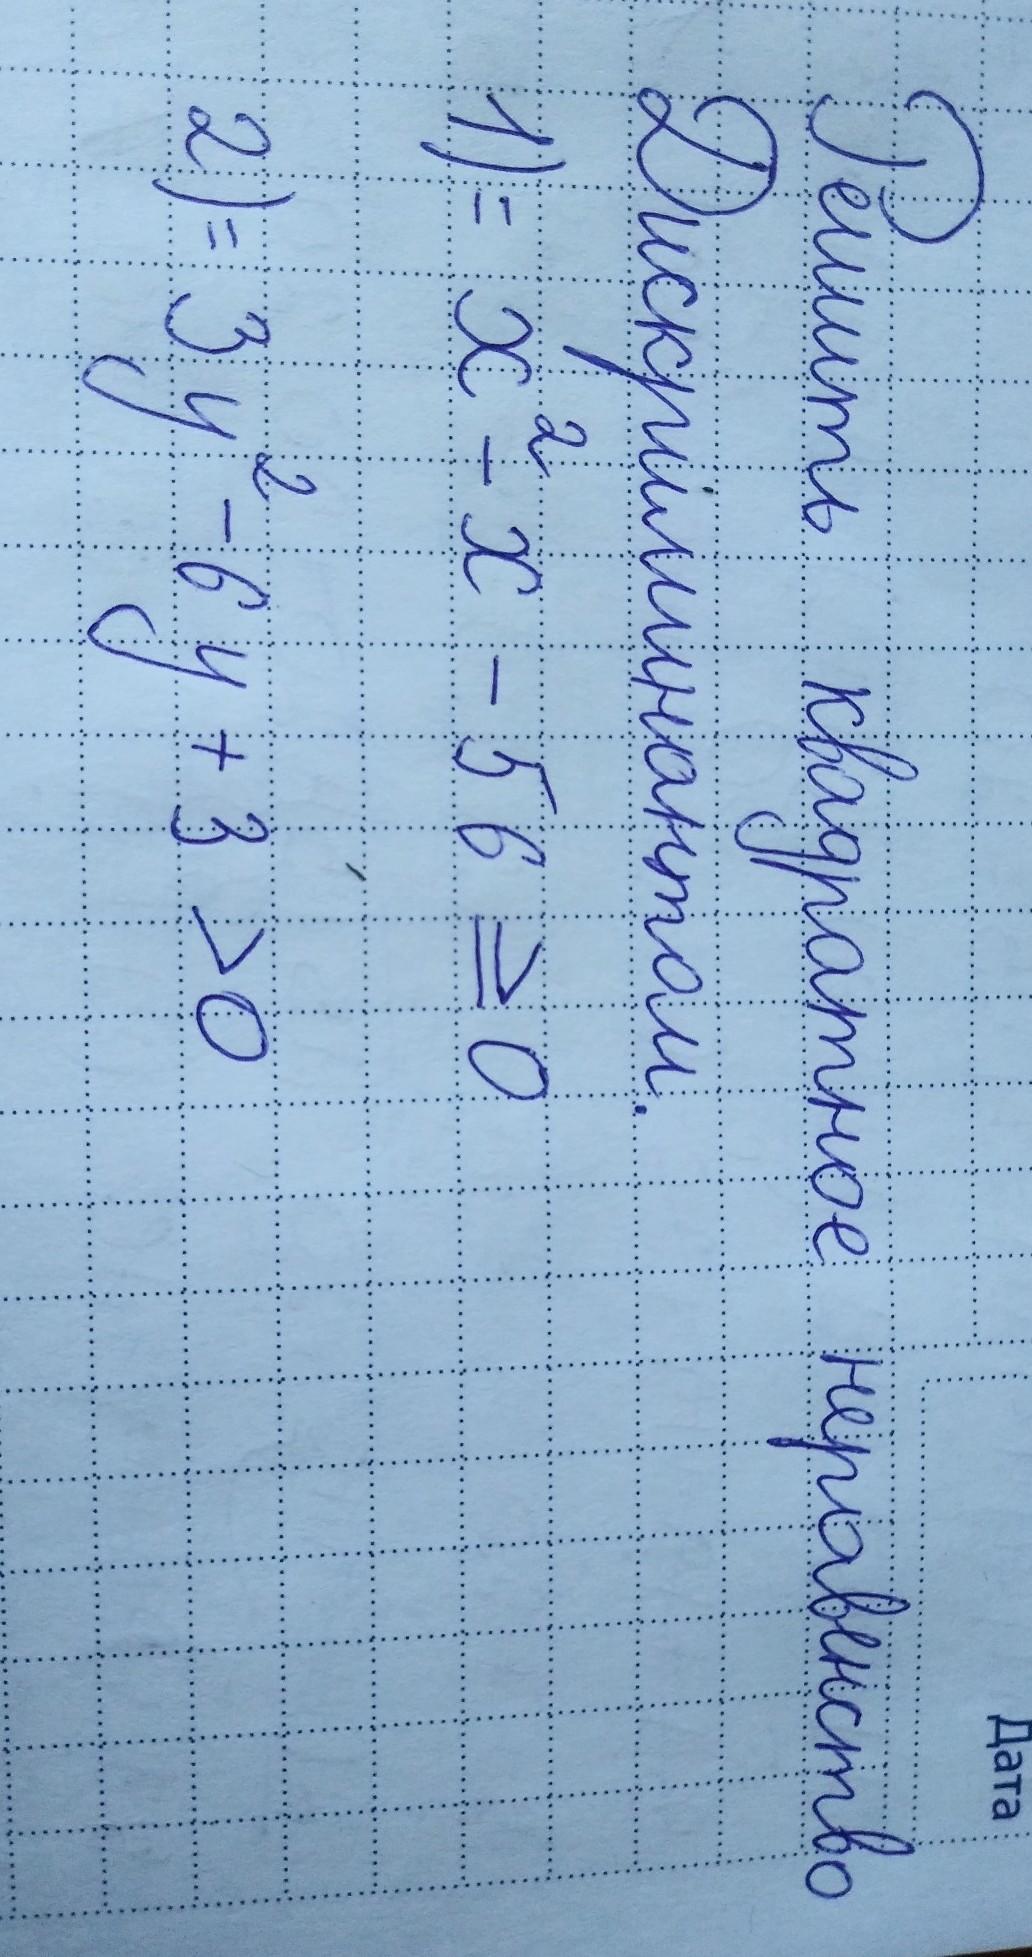 Дата
Решить квадратное неравенство
Дискримінантом.
1) = x² - x - 56 ≥ 0
2) = 3y² - 6y + 3 > 0